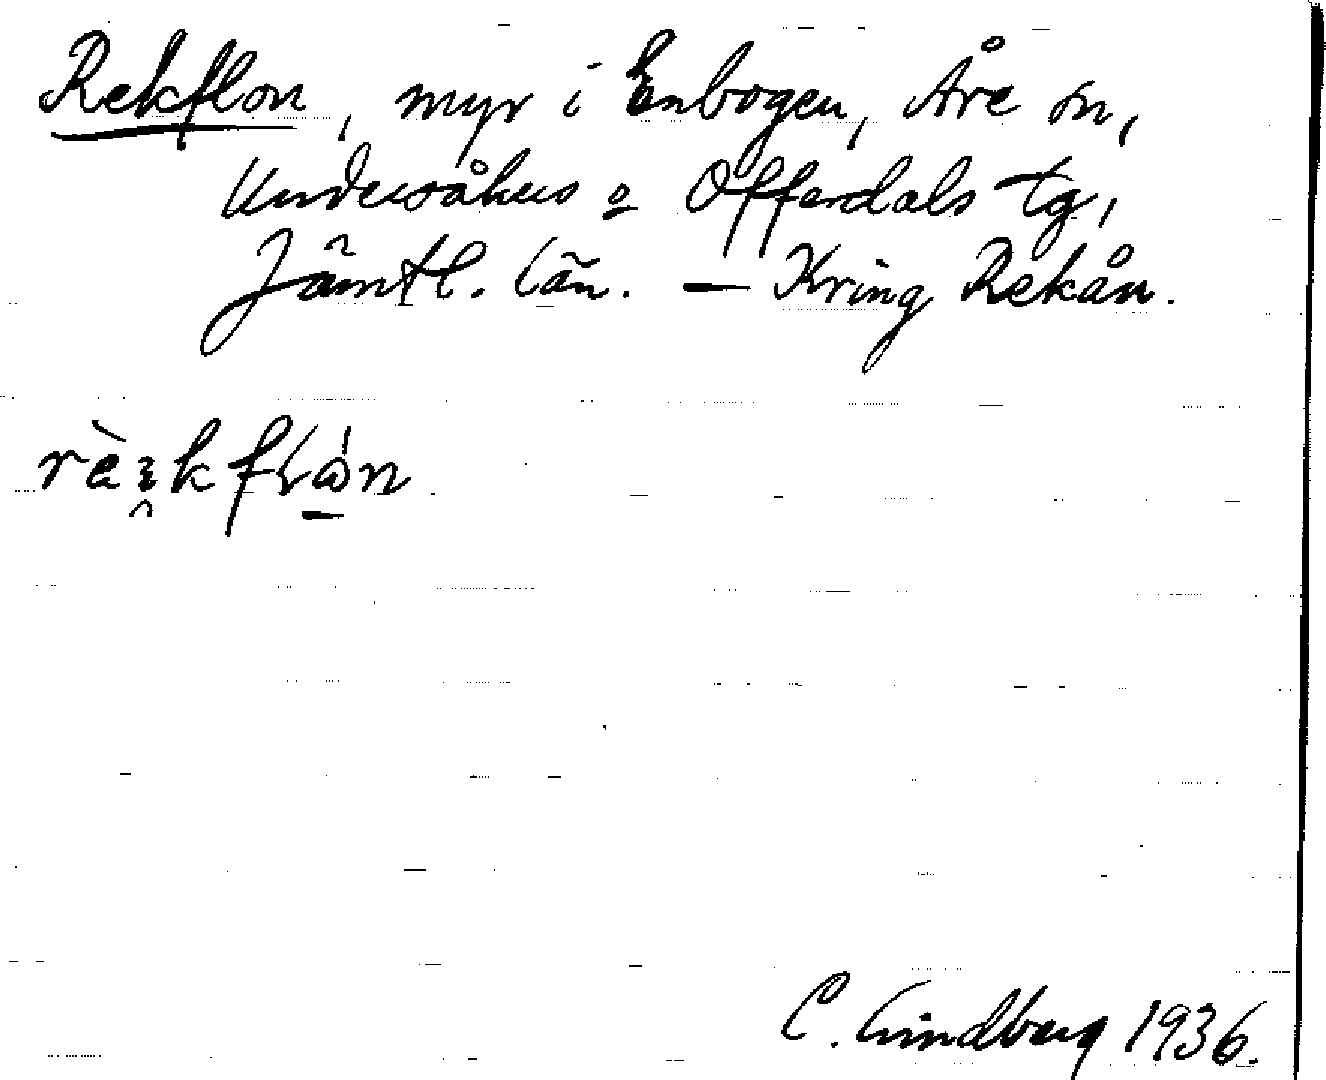 Rekflon, myr i Enbogen, Åre sn,
Undersåkers o Offerdals tg,
Jämtl. län. — Kring Rekån.
C. Lindberg 1936.